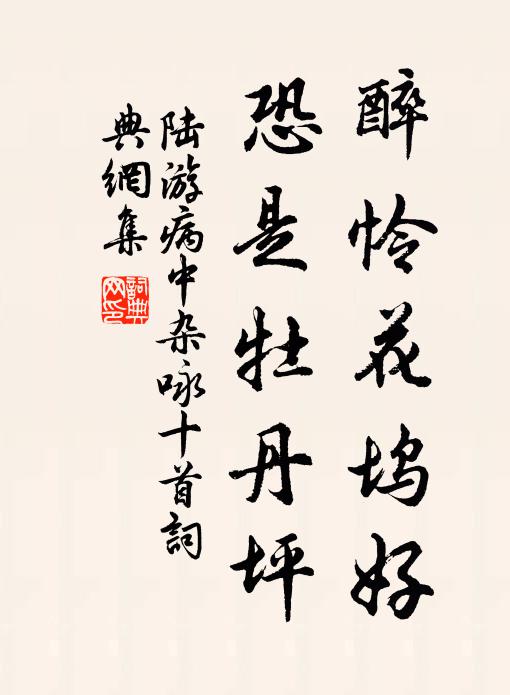 醉怜花坞好
恐是牡丹坪
陆游病中杂咏十首詞
典網集
詞典网印